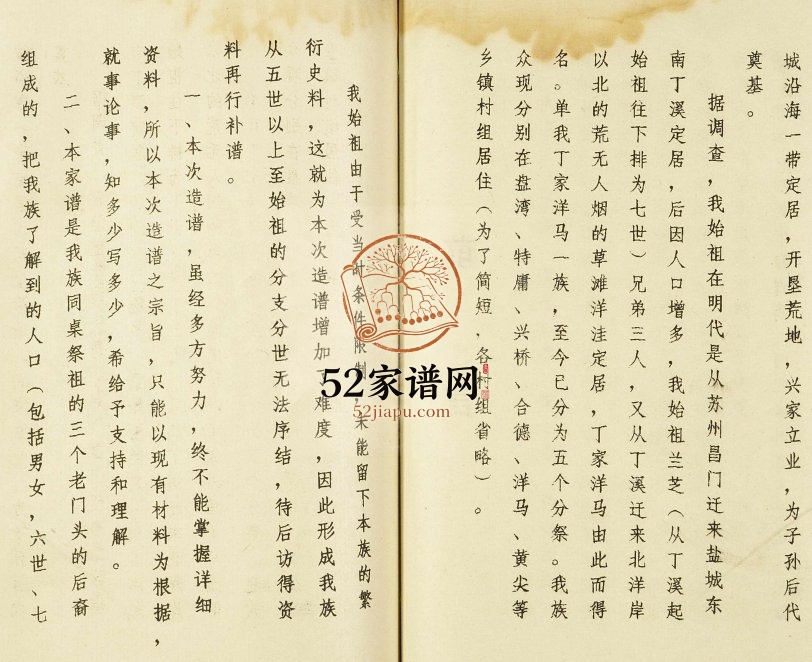 城沿海一带定居，开垦荒地，兴家立业，为子孙后代
奠基。
据调查，我始祖在明代是从苏州昌门迁来盐城东
南丁溪定居，后因人口增多，我始祖兰芝（从丁溪起
始祖往下排为七世）兄弟三人，又从丁溪迁来北洋岸
以北的荒无人烟的草滩洋洼定居，丁家洋马由此而得
名。单我丁家洋马一族，至今已分为五个分祭。我族
众现分别在盘湾、特庸、兴桥、合德、洋马、黄尖等
乡镇村组居住（为了简短，各村组省略）。
我始祖由于受当时条件限制，未能留下本族的繁
衍史料，这就为本次造谱增加了难度，因此形成我族
从五世以上至始祖的分支分世无法序结，待后访得资
料再行补谱。
一、本次造谱，虽经多方努力，终不能掌握详细
资料，所以本次造谱之宗旨，只能以现有材料为根据，
就事论事，知多少写多少，希给予支持和理解。
二、本家谱是我族同桌祭祖的三个老门头的后裔
组成的，把我族了解到的人口（包括男女，六世、七
52家谱网
52jiapu.com